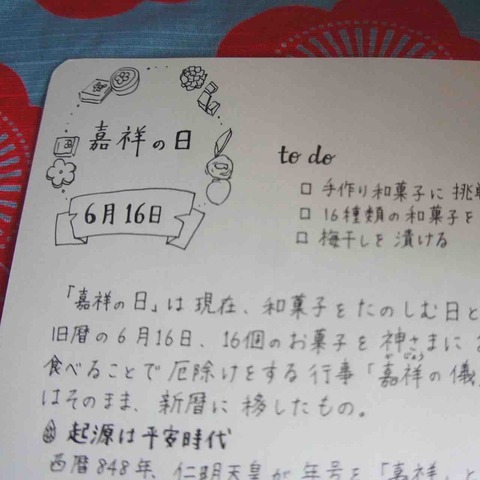 嘉祥の日
6月16日
to do
□ 手作り和菓子に挑戦
□ 16種類の和菓子を
□ 梅干しを漬ける
「嘉祥の日」は現在、和菓子をたのしむ日と
旧暦の6月16日、16個のお菓子を神さまにお
食べることで厄除けをする行事「嘉祥の儀」
はそのまま、新暦に移したもの。
起源は平安時代
西暦848年、仁明天皇が年号を「嘉祥」と